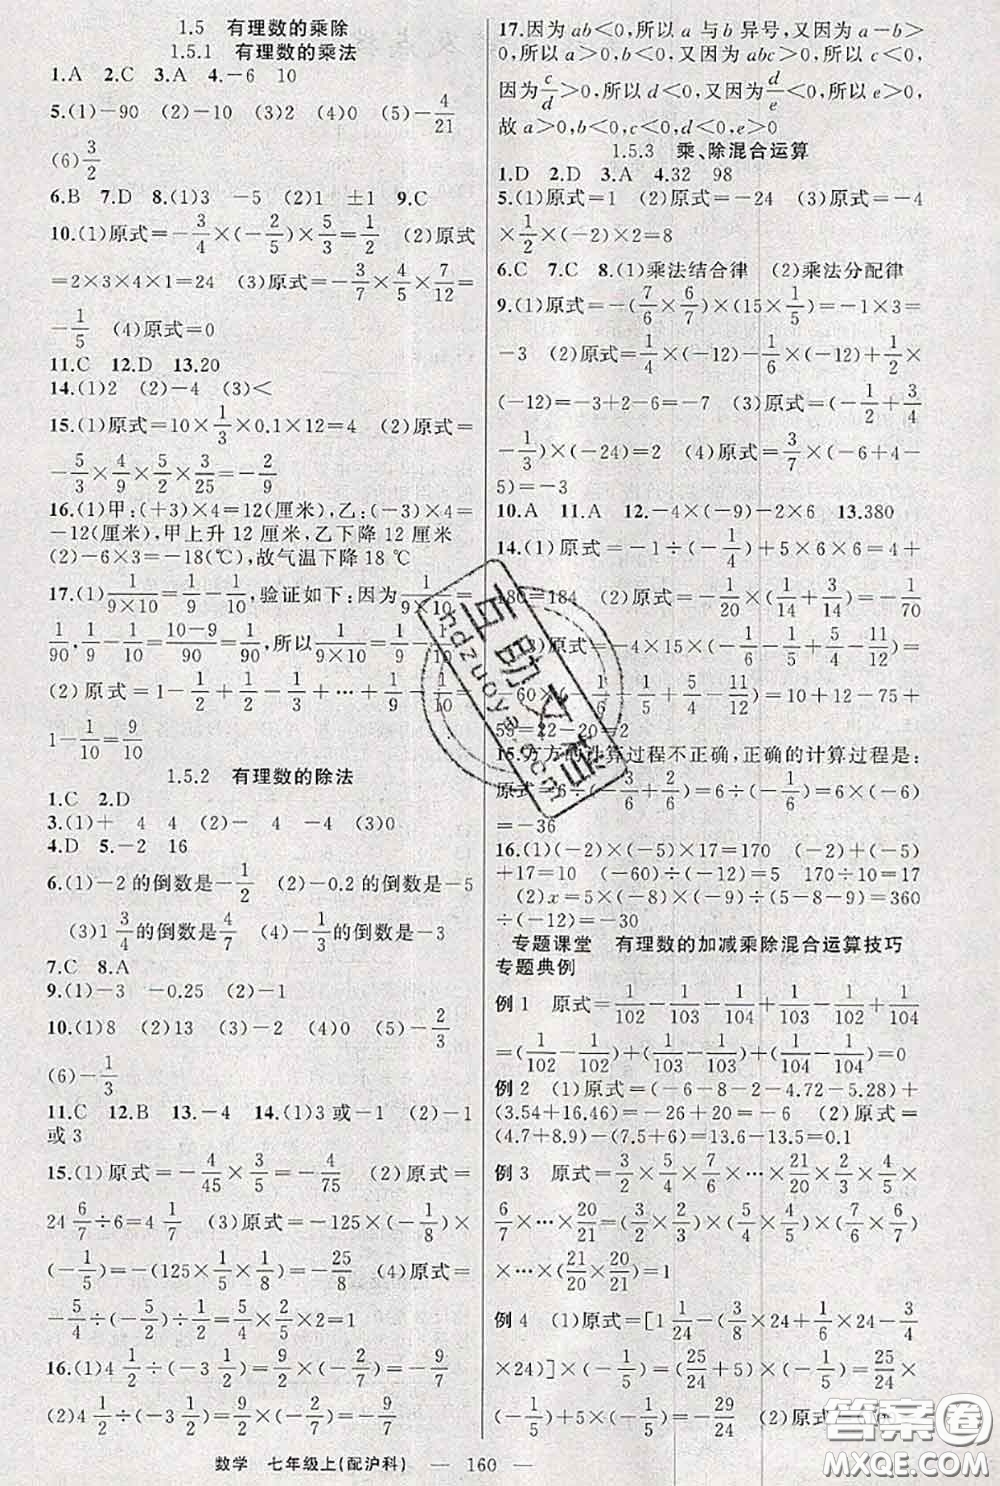 1.5 有理数的乘除
1.5.1 有理数的乘法
1.A 2.C 3.A 4.-6 10
5.(1)-90 (2)-10 (3)2 (4)0 (5)-4/21
(6)3/2
6.B 7.D 8.(1)3 -5 (2)1 ±1 9.C
10.(1)原式=-3/4×(-2/5)×5/3=1/2 (2)原式
=2×3×4×1=24 (3)原式=-3/7×4/5×7/12=
-1/5 (4)原式=0
11.C 12.D 13.20
14.(1)2 (2)-4 (3)<
15.(1)原式=10×1/3×0.1×12=4 (2)原式=
-5/3×3/9×5/2×3/25=-2/9
16.(1)甲:(+3)×4=12(厘米),乙:(-3)×4=
-12(厘米),甲上升 12 厘米,乙下降 12 厘米
(2)-6×3=-18(℃),故气温下降 18 ℃
17.(1)1/9×10=1/9-1/10,验证如下:因为1/9×10=
1/90,1/9-1/10=10-9/90=1/90,所以1/9×10=1/9-1/10
(2)原式=1-1/2+1/2-1/3+…+1/9-1/10=
1-1/10=9/10
1.5.2 有理数的除法
1.C 2.D
3.(1)+ 4 4 (2)- 4 -4 (3)0
4.D 5.-2 16
6.(1)-2的倒数是-1/2 (2)-0.2的倒数是-5
(3)1 3/4的倒数是4/7 (4)-1/3的倒数是-3
7.C 8.A
9.(1)-3 -0.25 (2)-1
10.(1)8 (2)13 (3)-2 (4)0 (5)-2/3
(6)-1/3
11.C 12.B 13.-4 14.(1)3或-1 (2)-1
或3
15.(1)原式=-4/45×3/5=-4/75 (2)原式=
24 6/7÷6=4 1/7 (3)原式=-125×(-1/8)×
(-1/5)=-(125×1/5×1/8)=-25/8 (4)原式=
-5/4÷(-5/2)÷1/2=5/4×2/5×2=1
16.(1)4 1/2÷(-3 1/2)=9/2×(-2/7)=-9/7
(2)4 1/2÷(-3 1/2)=9/2×(-2/7)=-9/7
数学 七年级上(配沪科) — 160 —
17.因为ab<0,所以a与b异号,又因为a-b>
0,所以a>0,b<0,又因为abc>0,所以c<0,
因为c/d>0,所以d<0,又因为d/e<0,所以e>0,
故a>0,b<0,c<0,d<0,e>0
1.5.3 乘、除混合运算
1.D 2.D 3.A 4.32 98
5.(1)原式=1 (2)原式=-24 (3)原式=-4
×1/2×(-2)×2=8
6.C 7.C 8.(1)乘法结合律 (2)乘法分配律
9.(1)原式=-(7/6×6/7)×(15×1/5)=-1×3=
-3 (2)原式=1/4×(-12)-1/6×(-12)+1/2×
(-12)=-3+2-6=-7 (3)原式=(-1/2+3/4
-1/3)×(-24)=2 (4)原式=3/7×(-6+4-
5)=-3
10.A 11.A 12.-4×(-9)-2×6 13.380
14.(1)原式=-1÷(-1/4)+5×6×6=4+
180=184 (2)原式=-1/20×(1/14+3/14)=-1/70
(3)原式=-4×15×(-1/6-1/5+5/4-11/12)=
-60×(-1/6-1/5+5/4-11/12)=10+12-75+
55=22-20=2
15.方方的计算过程不正确,正确的计算过程是:
原式=6÷(-3/6+2/6)=6÷(-1/6)=6×(-6)
=-36
16.(1)(-2)×(-5)×17=170 (-2)+(-5)
+17=10 (-60)÷(-12)=5 170÷10=17
(2)x=5×(-8)×(-9)÷(5-8-9)=360
÷(-12)=-30
专题课堂 有理数的加减乘除混合运算技巧
专题典例
例1 原式=1/102-1/103-1/104+1/103-1/102+1/104
=(1/102-1/102)+(1/103-1/103)+(1/104-1/104)=0
例2 (1)原式=(-6-8-2-4.72-5.28)+
(3.54+16.46)=-26+20=-6 (2)原式=
(4.7+8.9)-(7.5+6)=13.6-13.5=0.1
例3 原式=3/2×5/4×7/6×…×21/20×2/3×4/5×
6/7×…×20/21=(3/2×2/3)×(5/4×4/5)×(7/6×6/7)
×…×(21/20×20/21)=1
例4 (1)原式=[1 1/24-(3/8×24+1/6×24-3/4
×24)]×(-1/5)=(25/24+5)×(-1/5)=25/24×
(-1/5)+5×(-1/5)=-29/24 (2)原式=
互助文档
hdzuoye.com
答案圈